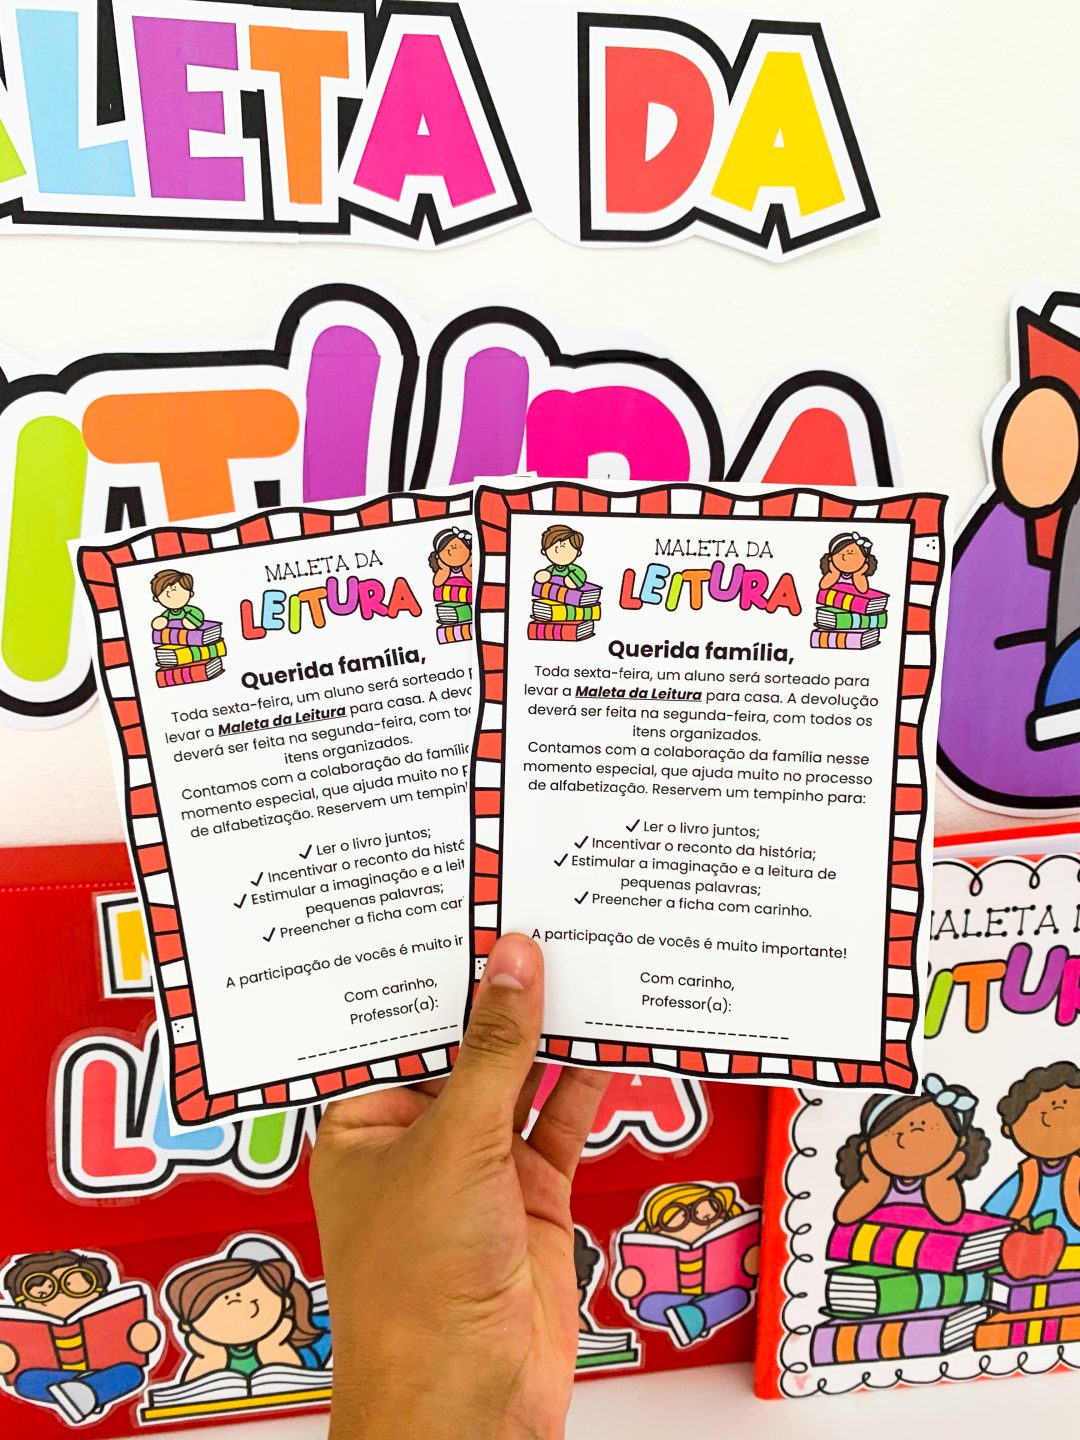 ALETA DA
ITURA
MALETA DA
LEITURA
Querida família,
Toda sexta-feira, um aluno será sorteado
levar a Maleta da Leitura para casa. A
deverá ser feita na segunda-feira, com
itens organizados.
Contamos com a colaboração da
momento especial, que ajuda muito no
de alfabetização. Reservem um
✓ Ler o livro juntos;
✓ Incentivar o reconto da
✓ Estimular a imaginação e a
pequenas palavras;
✓ Preencher a ficha com
A participação de vocês é muito
Com carinho,
Professor(a):
MALETA DA
LEITURA
Querida família,
Toda sexta-feira, um aluno será sorteado para
levar a Maleta da Leitura para casa. A devolução
deverá ser feita na segunda-feira, com todos os
itens organizados.
Contamos com a colaboração da família nesse
momento especial, que ajuda muito no processo
de alfabetização. Reservem um tempinho para:
✓ Ler o livro juntos;
✓ Incentivar o reconto da história;
✓ Estimular a imaginação e a leitura de
pequenas palavras;
✓ Preencher a ficha com carinho.
A participação de vocês é muito importante!
Com carinho,
Professor(a):
MALETA
ITUR
LEI A